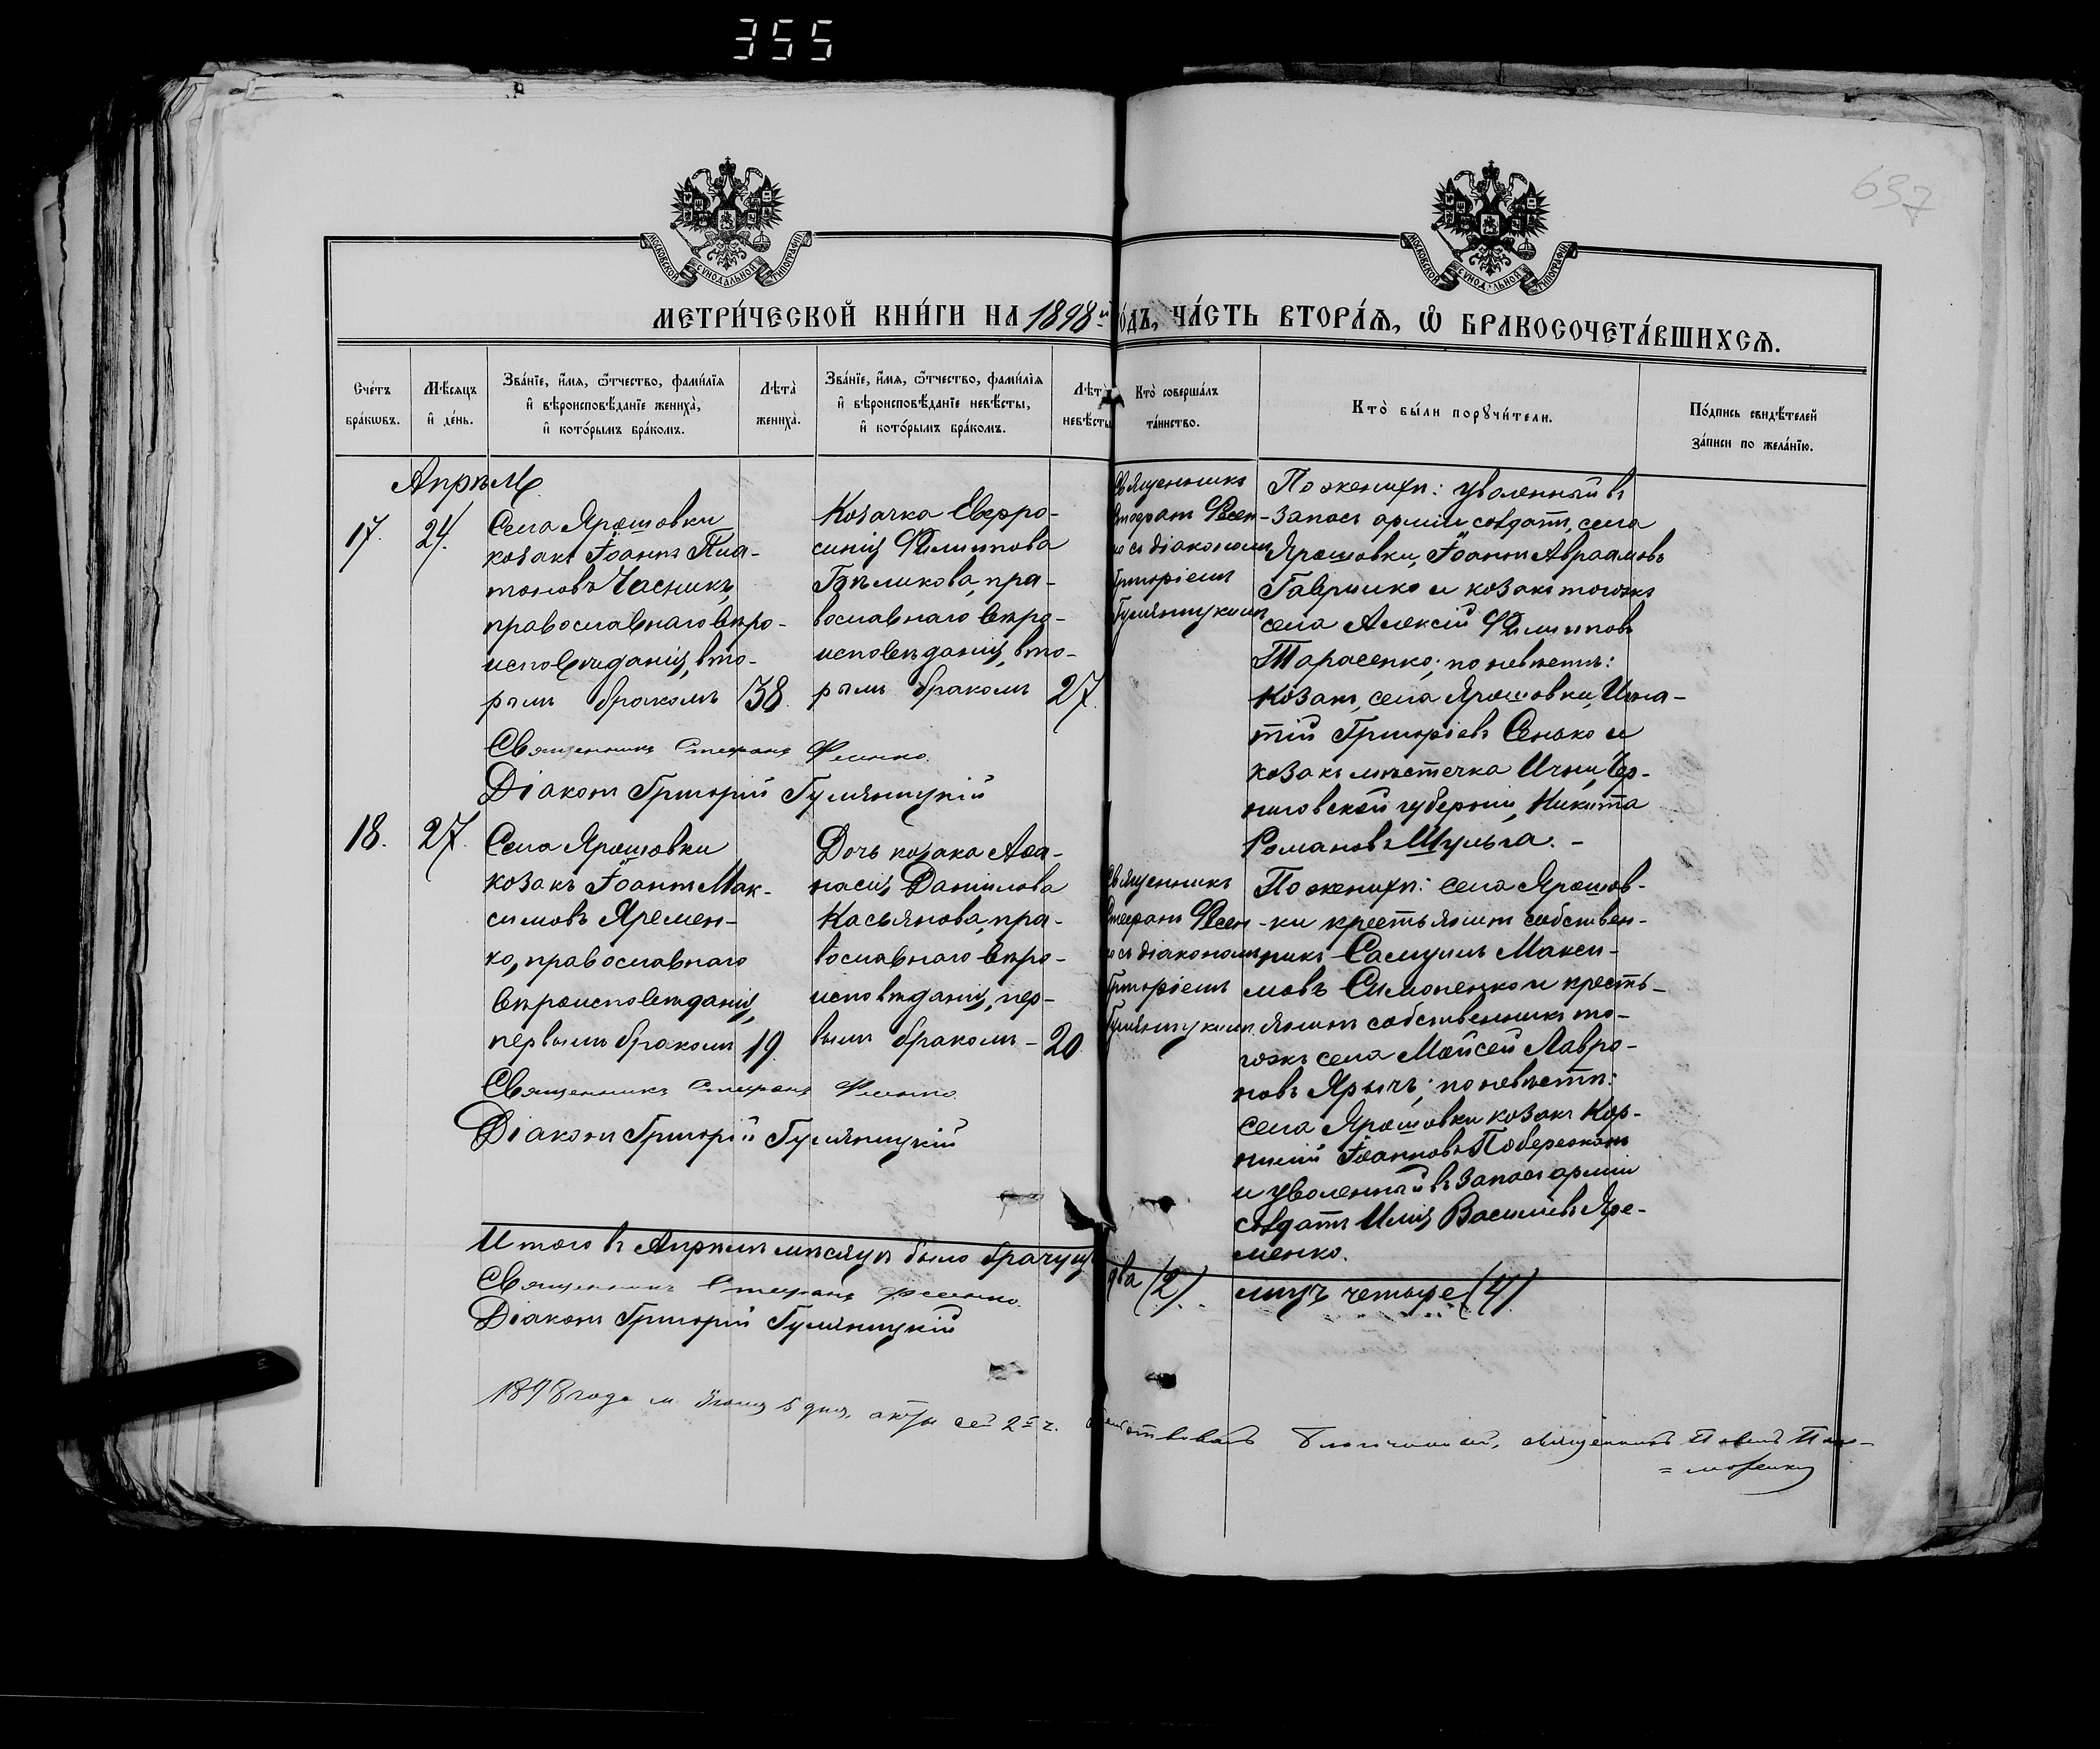 355
637
МОСКОВСКОЙ СѴНОДАЛЬНОЙ ТИПОГРАФІИ
МОСКОВСКОЙ СѴНОДАЛЬНОЙ ТИПОГРАФІИ
МЕТРИ́ЧЕСКОЙ КНИ́ГИ НА 1898й ГО́ДЪ, ЧА́СТЬ ВТОРА́Я, Ѡ БРАКОСОЧЕТА́ВШИХСЯ.
Сче́тъ
бра́кѡвъ.
Мѣ́сяцъ
и҆ де́нь.
Зва́нїе, и҆́мя, ѻ҆́тчество, фами́лїя
и҆ вѣроисповѣ́данїе жениха̀,
и҆ кото́рымъ бра́комъ.
Лѣта̀
жениха̀.
Зва́нїе, и҆́мя, ѻ҆́тчество, фами́лїя
и҆ вѣроисповѣ́данїе невѣ́сты,
и҆ кото́рымъ бра́комъ.
Лѣта̀
невѣ́сты
Кто̀ соверша́лъ
та́инство.
Кто̀ бы́ли порꙋчи́тели.
По́дпись свидѣ́телей
за́писи по жела́нїю.
Апрѣль
17.
24.
Села Ярошовки
козакъ Іоаннъ Пла-
тоновъ Часникъ,
православнаго вѣро-
исповѣданія, вто-
рымъ бракомъ
38.
Козачка Евфро-
синія Филиппова
Бѣликова, пра-
вославнаго вѣро-
исповѣданія, вто-
рымъ бракомъ
27.
Священникъ
Стефанъ Фесен-
ко съ діакономъ
Григоріемъ
Гумяницкимъ
По женихѣ: уволенный въ
запасъ арміи солдатъ, села
Ярошовки, Іоаннъ Авраамовъ
Гавришко и козакъ тогожъ
села Алексій Филипповъ
Тарасенко; по невѣстѣ:
козакъ, села Ярошовки, Игна-
тій Григоріевъ Сенько и
козакъ мѣстечка Ични, Чер-
ниговской губерніи, Никита
Романовъ Шульга. –
Священникъ Стефанъ Фесенко.
Діаконъ Григорій Гумяницкій
18.
27.
Села Ярошовки
козакъ Іоаннъ Мак-
симовъ Яремен-
ко, православнаго
вѣроисповѣданія,
первымъ бракомъ
19.
Дочь козака Афа-
насія Даніилова
Касьянова, пра-
вославнаго вѣро-
исповѣданія, пер-
вымъ бракомъ –
20.
Священникъ
Стефанъ Фесен-
ко съ діакономъ
Григоріемъ
Гумяницкимъ
По женихѣ: села Ярошов-
ки крестьянинъ собствен-
никъ Самуилъ Макси-
мовъ Симоненко и кресть-
янинъ собственникъ то-
гожъ села Моисей Лавро-
новъ Ярычъ; по невѣстѣ:
села Ярошовки козакъ Кор-
нилій Іоанновъ Побережный
и уволенный въ запасъ арміи
солдатъ Илія Васильевъ Яре-
менко.
Священникъ Стефанъ Фесенко.
Діаконъ Григорій Гумяницкій
Итого въ Апрѣлѣ мѣсяцѣ было брачущ
два (2). лицъ четыре (4)
Священникъ Стефанъ Фесенко.
Діаконъ Григорій Гумяницкій
1898 года м. Іюня 5 дня, акты сей 2й ч.
Благочинный, священникъ Павелъ